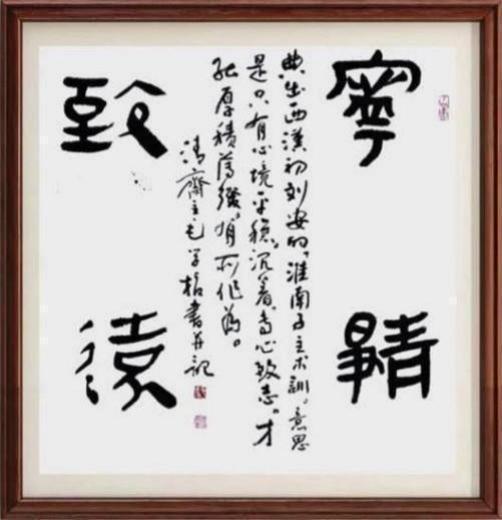 寧靜
典出西漢初刘安的,淮南子主术訓。意思
是只有心境平稳。沉着,专心致志。才
能厚積薄發,有所作為。
清齋主毛学書并記
致遠